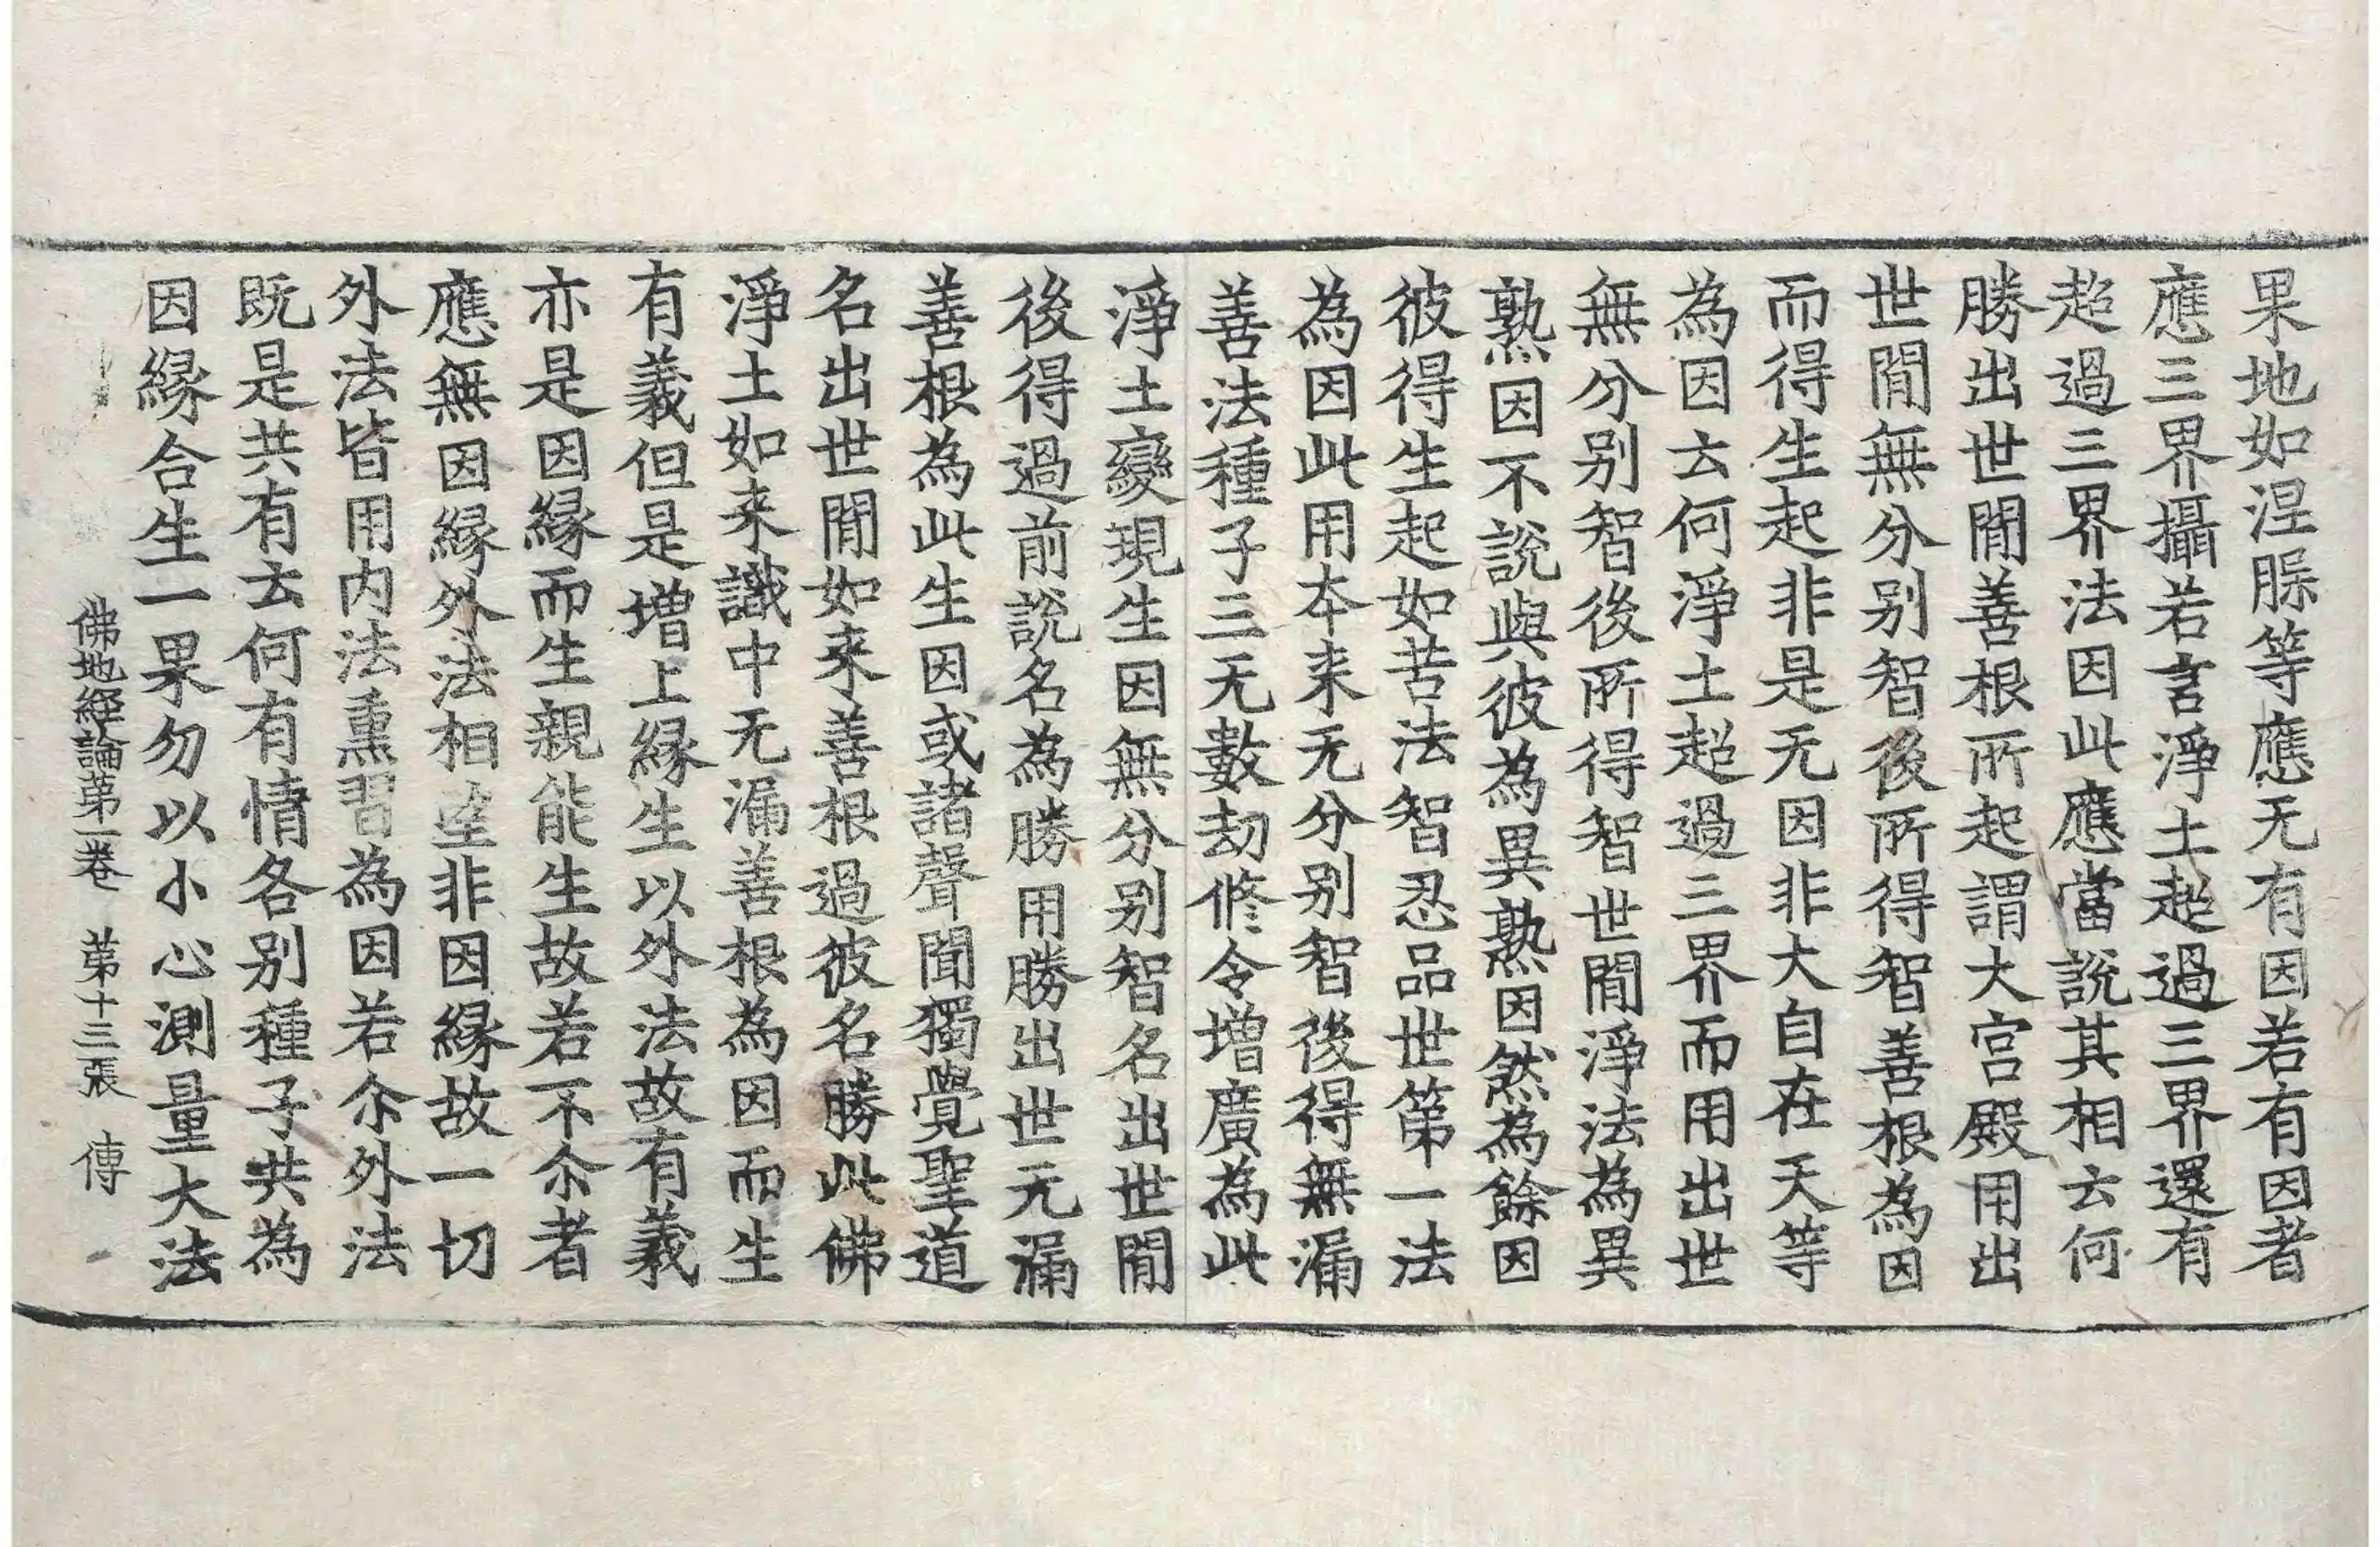 果地如涅脲等應无有因若有因者
應三界攝若言淨土超過三界還有
超過三界法因此應當說其相云何
勝出世閒善根所起謂大宮殿用出
世閒無分别智後所得智善根為因
而得生起非是无因非大自在天等
為因云何淨土超過三界而用出世
無分别智後所得智世閒淨法為異
熟因不說與彼為異熟因然為餘因
彼得生起如苦法智忍品世第一法
為因此用本来无分别智後得無漏
善法種子三无數劫修令增廣為此
淨土變現生因無分别智名出世閒
後得過前說名為勝用勝出世无漏
善根為此生因或諸聲聞獨覺聖道
名出世閒如来善根過彼名勝此佛
淨土如来識中无漏善根為因而生
有義但是增上緣生以外法故有義
亦是因緣而生親能生故若不尒者
應無因緣外法相望非因緣故一切
外法皆用内法熏習為因若尒外法
既是共有云何有情各别種子共為
因緣合生一果勿以小心測量大法
佛地經論第一卷　第十三張　傳